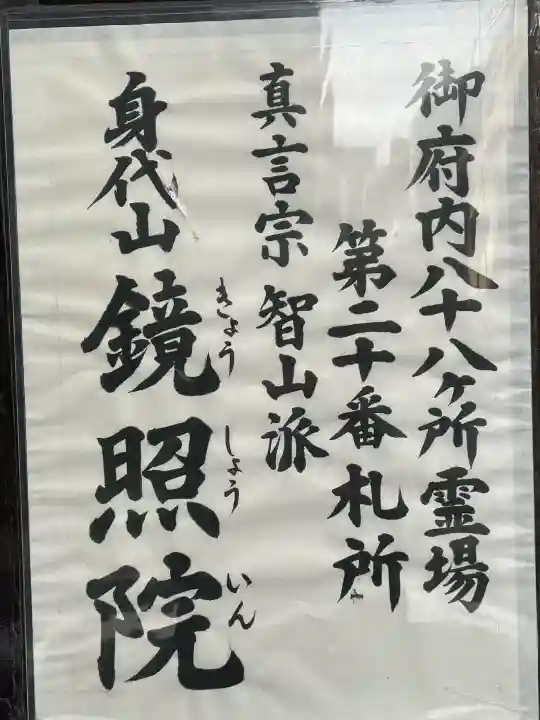 御府内八十八ヶ所霊場
第二十番札所
真言宗智山派
身代山鏡照院
きょう
しょう
いん